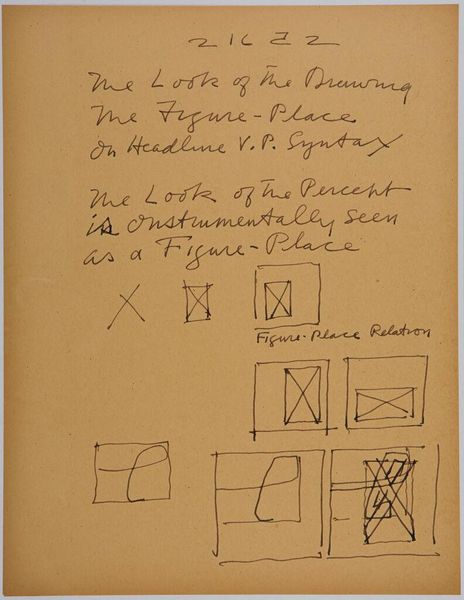 The Look of the Drawing
The Figure-Place
On Headline V.P. Syntax
The Look of the Percept
is Instrumentally Seen
as a Figure-Place
Figure-Place Relation